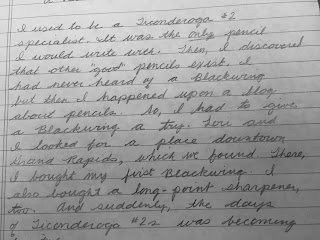 I used to be a Ticonderoga #2
specialist. It was the only pencil
I would write with. Then, I discovered
that other "good" pencils exist. I
had never heard of a Blackwing
but then I happened upon a blog
about pencils. So, I had to give
a Blackwing a try. Lou and
I looked for a place downtown
Grand Rapids, which we found. There,
I bought my first Blackwing. I
also bought a long-point sharpener,
too. And suddenly, the days
of Ticonderoga #2s was becoming